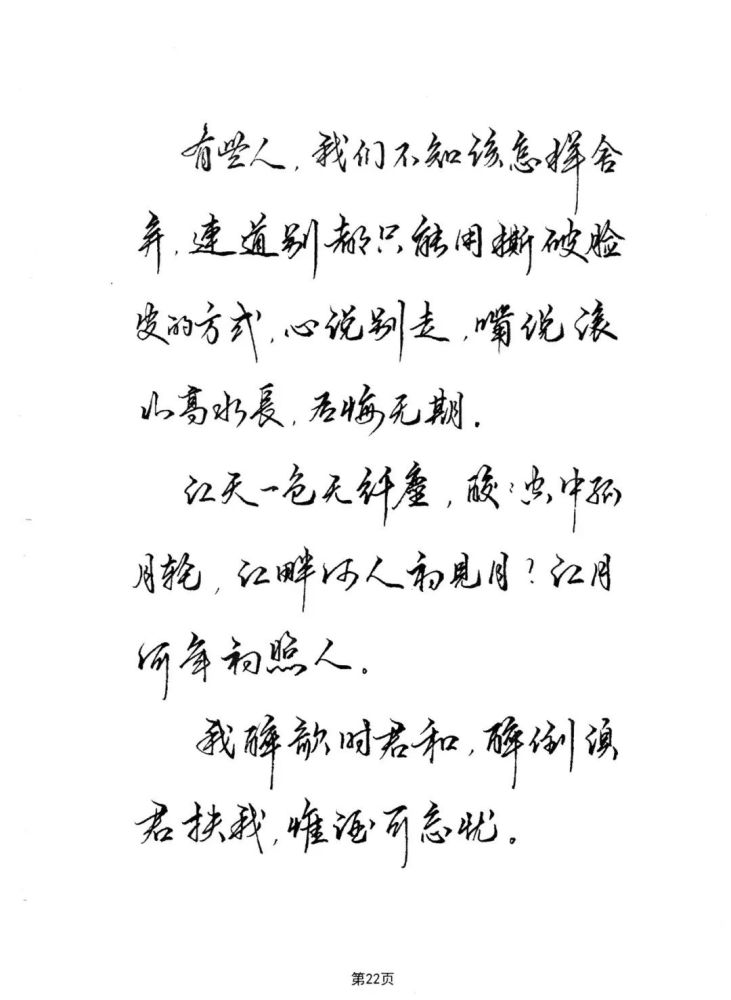 有些人,我们不知该怎样舍
弃,連道别都只能用撕破脸
皮的方式,心说别走,嘴说滚
山高水長,后悔无期.
江天一色无纤塵,皎:空中孤
月轮,江畔何人初見月?江月
何年初照人。
我醉歌时君和,醉倒须
君扶我,惟酒可忘忧。
第22页